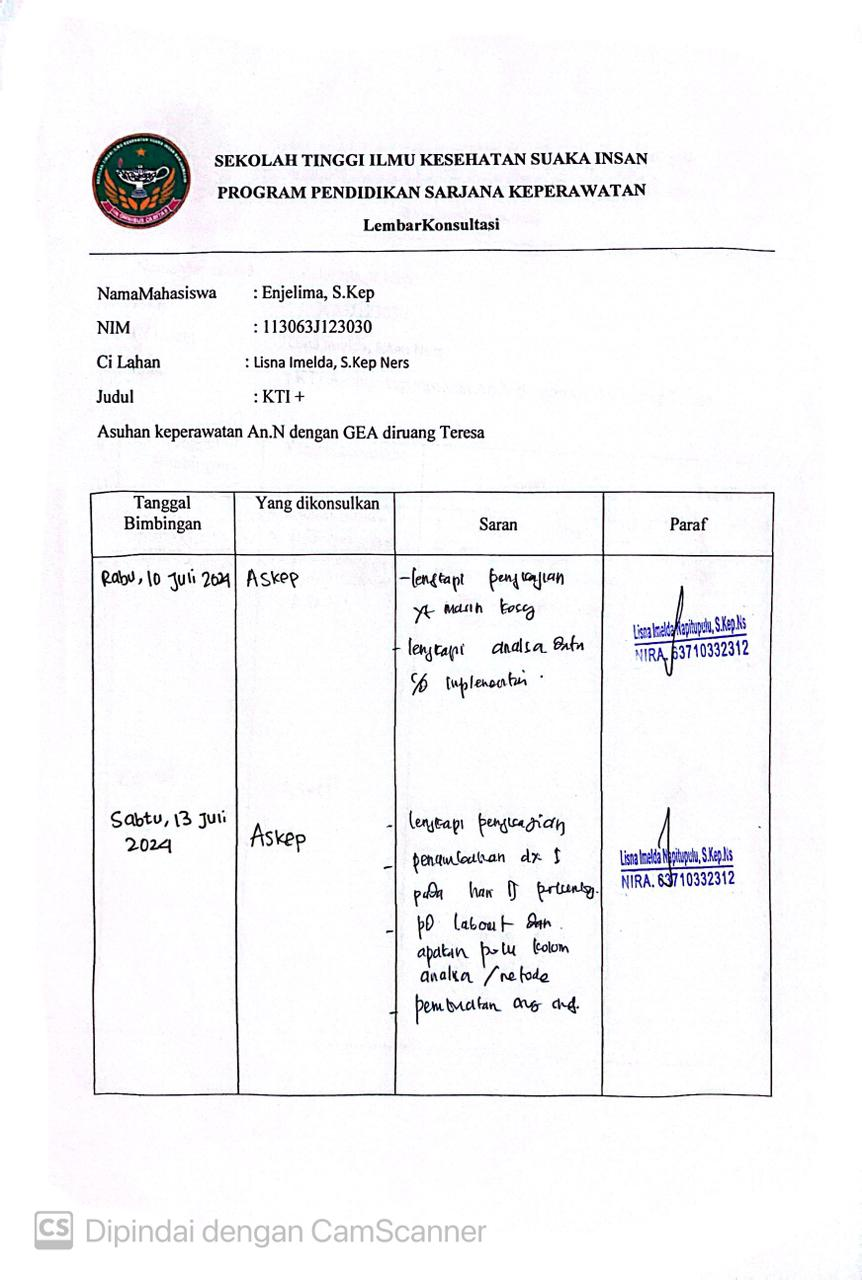 SEKOLAH TINGGI ILMU KESEHATAN SUAKA INSAN
PROGRAM PENDIDIKAN SARJANA KEPERAWATAN
LembarKonsultasi
NamaMahasiswa : Enjelima, S.Kep
NIM : 113063J123030
Ci Lahan : Lisna Imelda, S.Kep Ners
Judul : KTI +
Asuhan keperawatan An.N dengan GEA diruang Teresa
Tanggal Bimbingan
Yang dikonsulkan
Saran
Paraf
Rabu, 10 Juli 2024
Askep
- lengkapi pengkajian
masih
- lengkapi analisa data
implementasi
Lisna Imelda Napitupulu, S.Kep.Ns
NIRA. 63710332312
Sabtu, 13 Juli
2024
Askep
- lengkapi pengkajian
- penambahan dx
pada
- labout dan
kolom
/metode
- pembuatan
Lisna Imelda Napitupulu, S.Kep.Ns
NIRA. 63710332312
CS Dipindai dengan CamScanner